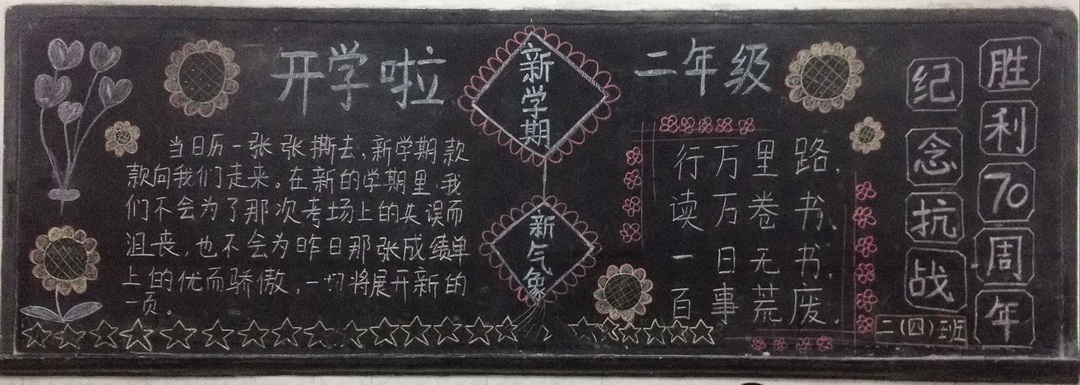 开学啦
当日历一张张撕去,新学期款
款向我们走来。在新的学期里,我
们不会为了那次考场上的失误而
沮丧,也不会为昨日那张成绩单
上的优而骄傲,一切将展开新的
一页。
新学期
新气象
二年级
行万里路,
读万卷书,
一日无书,
百事荒废.
纪念抗战
胜利70周年
二(四)班